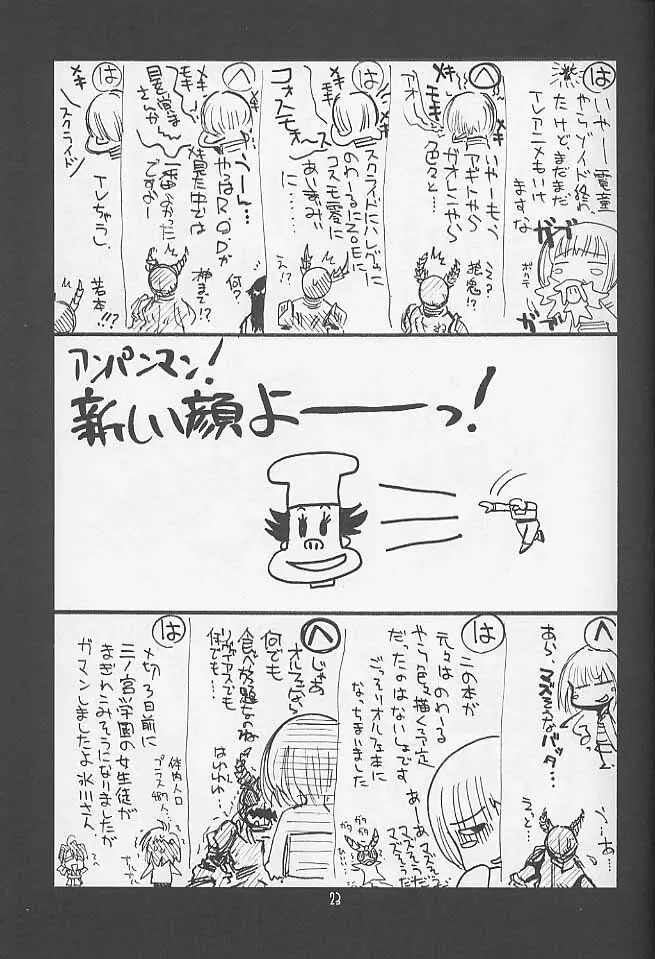 は
いやー電童
やらゾイド終わっ
たけど、まだまだ
TVアニメもいけ
ますな
ガブ
ガブ
へ
メキ
モキ
いやーもう
アギトやら
ガオレンやら
色々と…
は
メキ
コォスモォース
スクライドにハレグゥに
のわーるにZ.O.Eに
コスモ零に
あじまぁみぃ
に……
え!?
へ
メキ
うーん…
やっぱR.O.Dが
見た中では
一番よかった
ですよー
何?
神まで!?
は
メキ
メキ
スクライド
TVちゃうし、
若本!!?
アンパンマン!
新しい顔よーーっ!
へ
あら、マズそうなバッタ…
う…あ…
えっと…
は
この本が
元々はのわーる
やら色々描く予定
だったのはないしょです
ごっそりオルフェ本に
なっちまいました
あーあマズそうだ
マズそうだ
マズそうだ
へ
じゃあ
オルフェなら
何でも
食べ放題なのね
リヴァイアスでも
何でも…
はわわわ…
は
〆切3日前に
三ノ宮学園の女生徒が
まぎれこみそうになりましたが
ガマンしましたよ氷川さん
体内人口
プラス487人
23